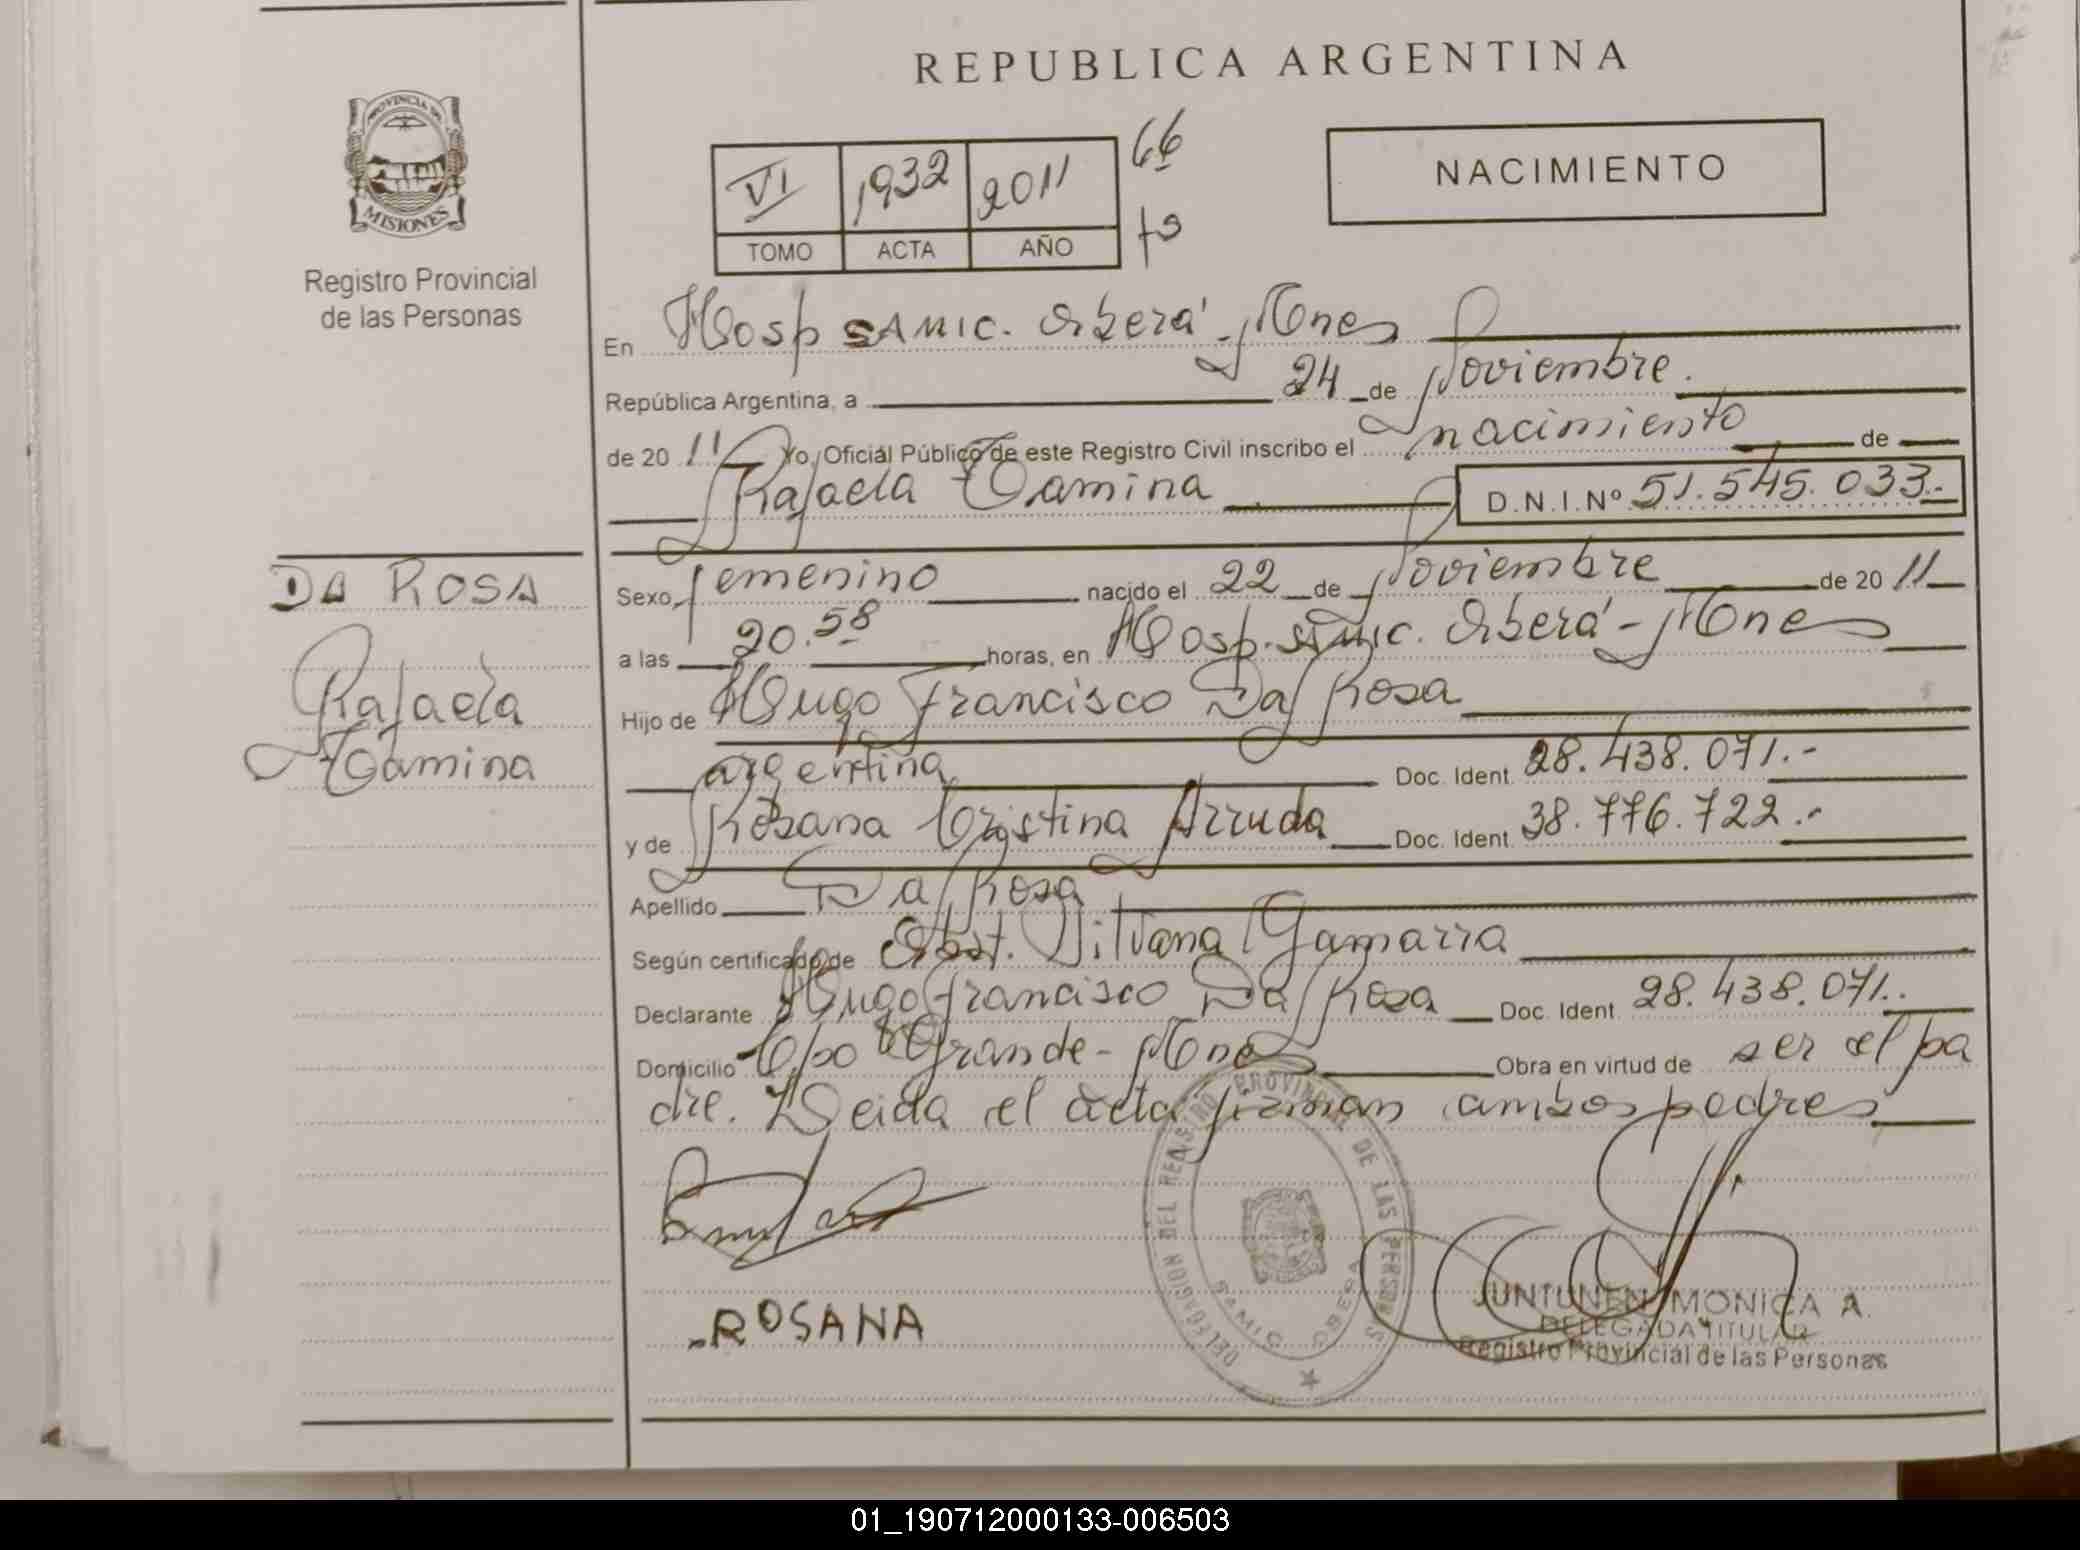 REPUBLICA ARGENTINA
PROVINCIA DE
MISIONES
Registro Provincial
de las Personas
VI 1932 2011 66
TOMO ACTA AÑO
NACIMIENTO
En Hosp SAMIC. Oberá - Mnes
República Argentina, a 24 de Noviembre.
de 20 11 Yo, Oficial Público de este Registro Civil inscribo el nacimiento de
Rafaela Tamina D.N.I.Nº 51.545.033.-
DA ROSA
Rafaela
Tamina
Sexo femenino nacido el 22 de Noviembre de 20 11
a las 20.58 horas, en Hosp. SAMIC. Oberá - Mnes
Hijo de Hugo Francisco Da Rosa
argentina Doc. Ident. 28.438.071.-
y de Rosana Cristina Arruda Doc. Ident. 38.776.722.-
Apellido Da Rosa
Según certificado de Obst. Silvana Gamarra
Declarante Hugo Francisco Da Rosa Doc. Ident. 28.438.071..
Domicilio Cpo Grande - Mnes Obra en virtud de ser el pa
dre. Leida el acta firman ambos padres
DELEGACION DEL REGISTRO PROVINCIAL DE LAS PERSONAS
SAMIC OBERA
ROSANA
JUNTUNEN MONICA A.
DELEGADA TITULAR
Registro Provincial de las Personas
01_190712000133-006503